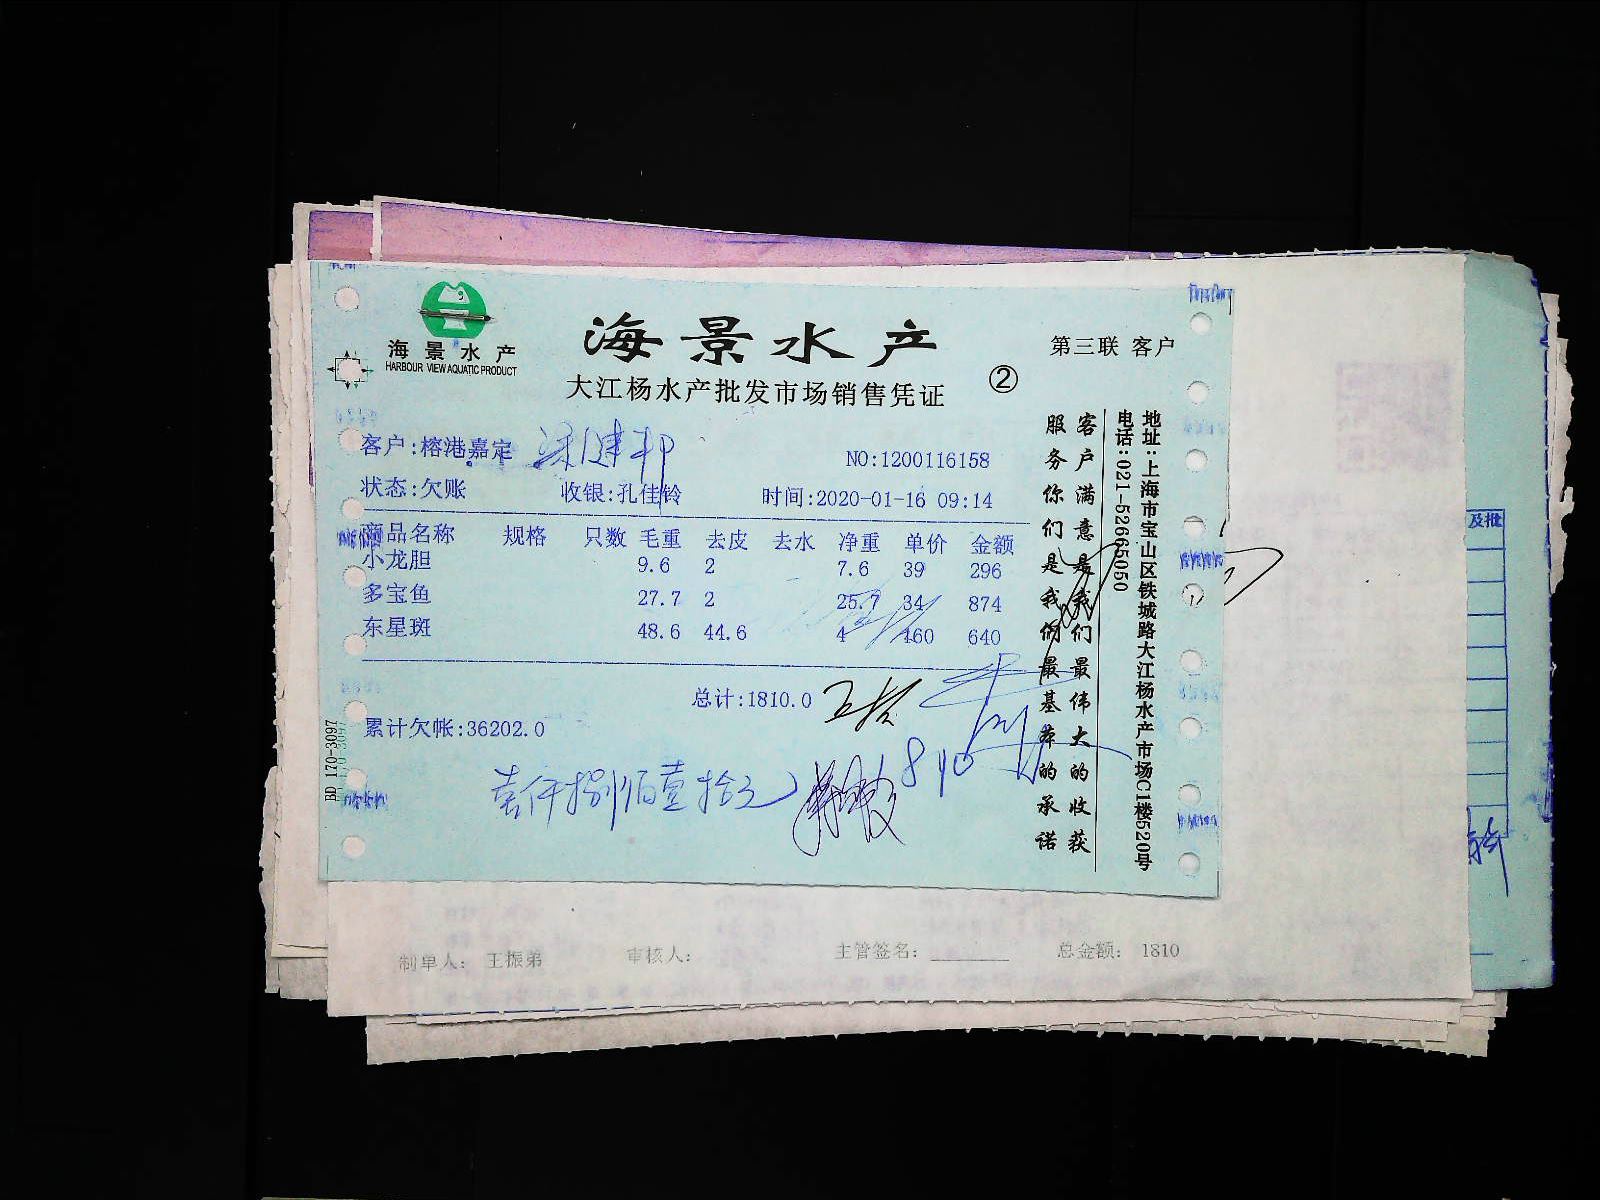 海景水产
HARBOUR VIEW AQUATIC PRODUCT
海景水产
大江杨水产批发市场销售凭证
②
第三联 客户
客户:榕港嘉定
NO:1200116158
状态:欠账 收银:孔佳铃 时间:2020-01-16 09:14
商品名称 规格 只数 毛重 去皮 去水 净重 单价 金额
小龙胆 9.6 2 7.6 39 296
多宝鱼 27.7 2 25.7 34 874
东星斑 48.6 44.6 4 160 640
总计:1810.0
累计欠帐:36202.0
壹仟捌佰壹拾元
1810
客户满意是我们最伟大的收获
服务你们是我们最基本的承诺
地址:上海市宝山区铁城路大江杨水产市场C1楼520号
电话:021-52665050
BD 170-3097
及批
制单人: 王振弟 审核人: 主管签名: 总金额: 1810